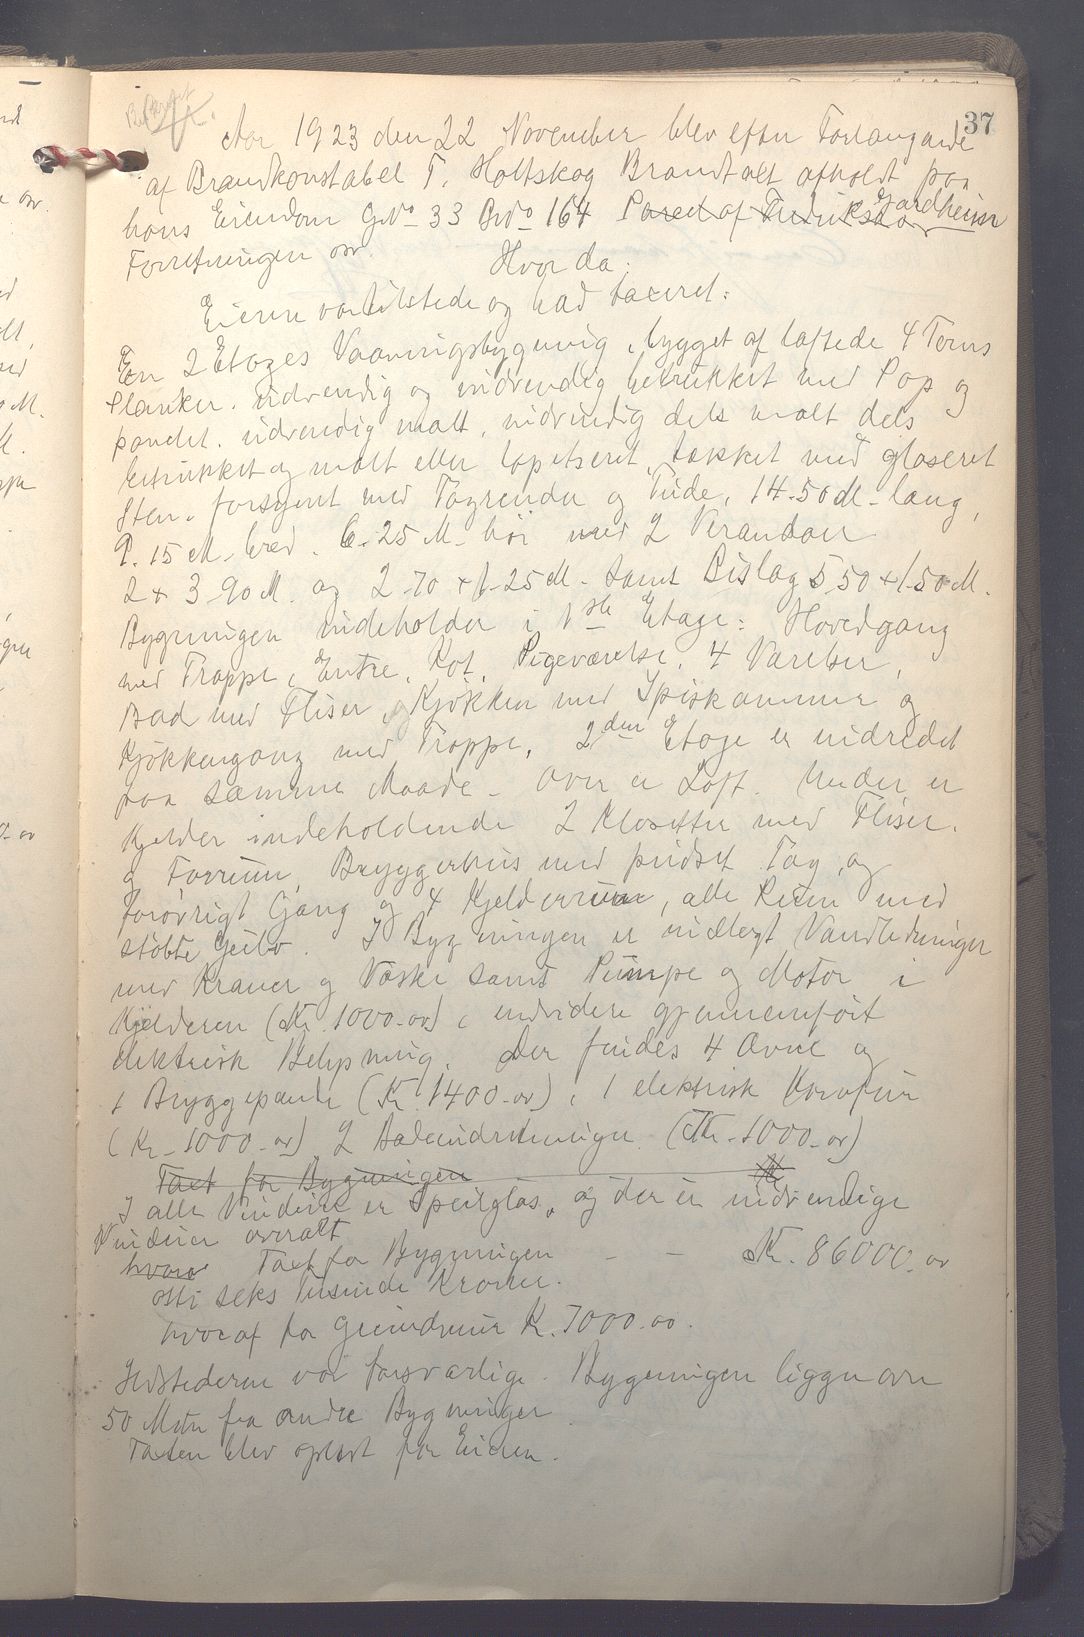 37
Aar 1923 den 22 November blev efter Forlangende
af Brandkonstabel T. Holtskog Brandtakt afholdt paa
hans Eiendom Gno 33 Bno 164 Parcel af Gardheim
Forretningen ov.
Hvor da:
Eieren var tilstede og lod taxeret:
En 2 Etages Vaaningsbygning, bygget af laftede 4 Toms
Planker. udvendig og indvendig betrukket med Pap og
panelt. udvendig malt, indvendig dels malt dels
betrukket og malt eller tapetseret, tækket med glaseret
Sten. forsynt med Tagrender og Nede, 14-50 M- lang,
9.15 M- bred. 6-25 M- høi med 2 Verandaer
2 x 3-90 M. og 2-70 x 1-25 M- samt Bislag 5-50 x 1-50 M.
Bygningen indeholder i 1ste Etage: Hovedgang
med Trappe, Entre, Kot, Pigeværelse, 4 Værelser,
Bad med Fliser, Kjøkken med Spiskammer og
Kjøkkengang med Trappe, 2den Etage er indredet
paa samme Maade - Over er Loft. Under er
Kjelder indeholdende 2 Klosetter med Fliser.
og Forrum, Bryggerhus med pudset Tag, og
forøvrigt Gang og 4 Kjelderrum, alle Rum med
støbte Gulv. I Bygningen er indlagt Vandledninger
med Kraner og Vaske samt Pumpe og Motor i
Kjelderen (Kr. 1000-00), endvidere gjennemført
elektrisk Belysning. Der findes 4 Ovne og
1 Bryggepande (Kr. 1400-00), 1 elektrisk Komfur
(Kr- 1000-00) 2 Badeindretninger (Kr-1000-00)
Taxt for Bygningen Kr
I alle Vinduer er Speilglas, og der er indvendige
Vinduer overalt
hvoraf Taxt for Bygningen - - Kr. 86000.00
otti seks tusinde Kroner.
hvoraf for Grundmur Kr. 7000.00.
Ildstederne var forsvarlige. Bygningen ligger over
50 Meter fra andre Bygninger
Taxten blev oplæst for Eieren.